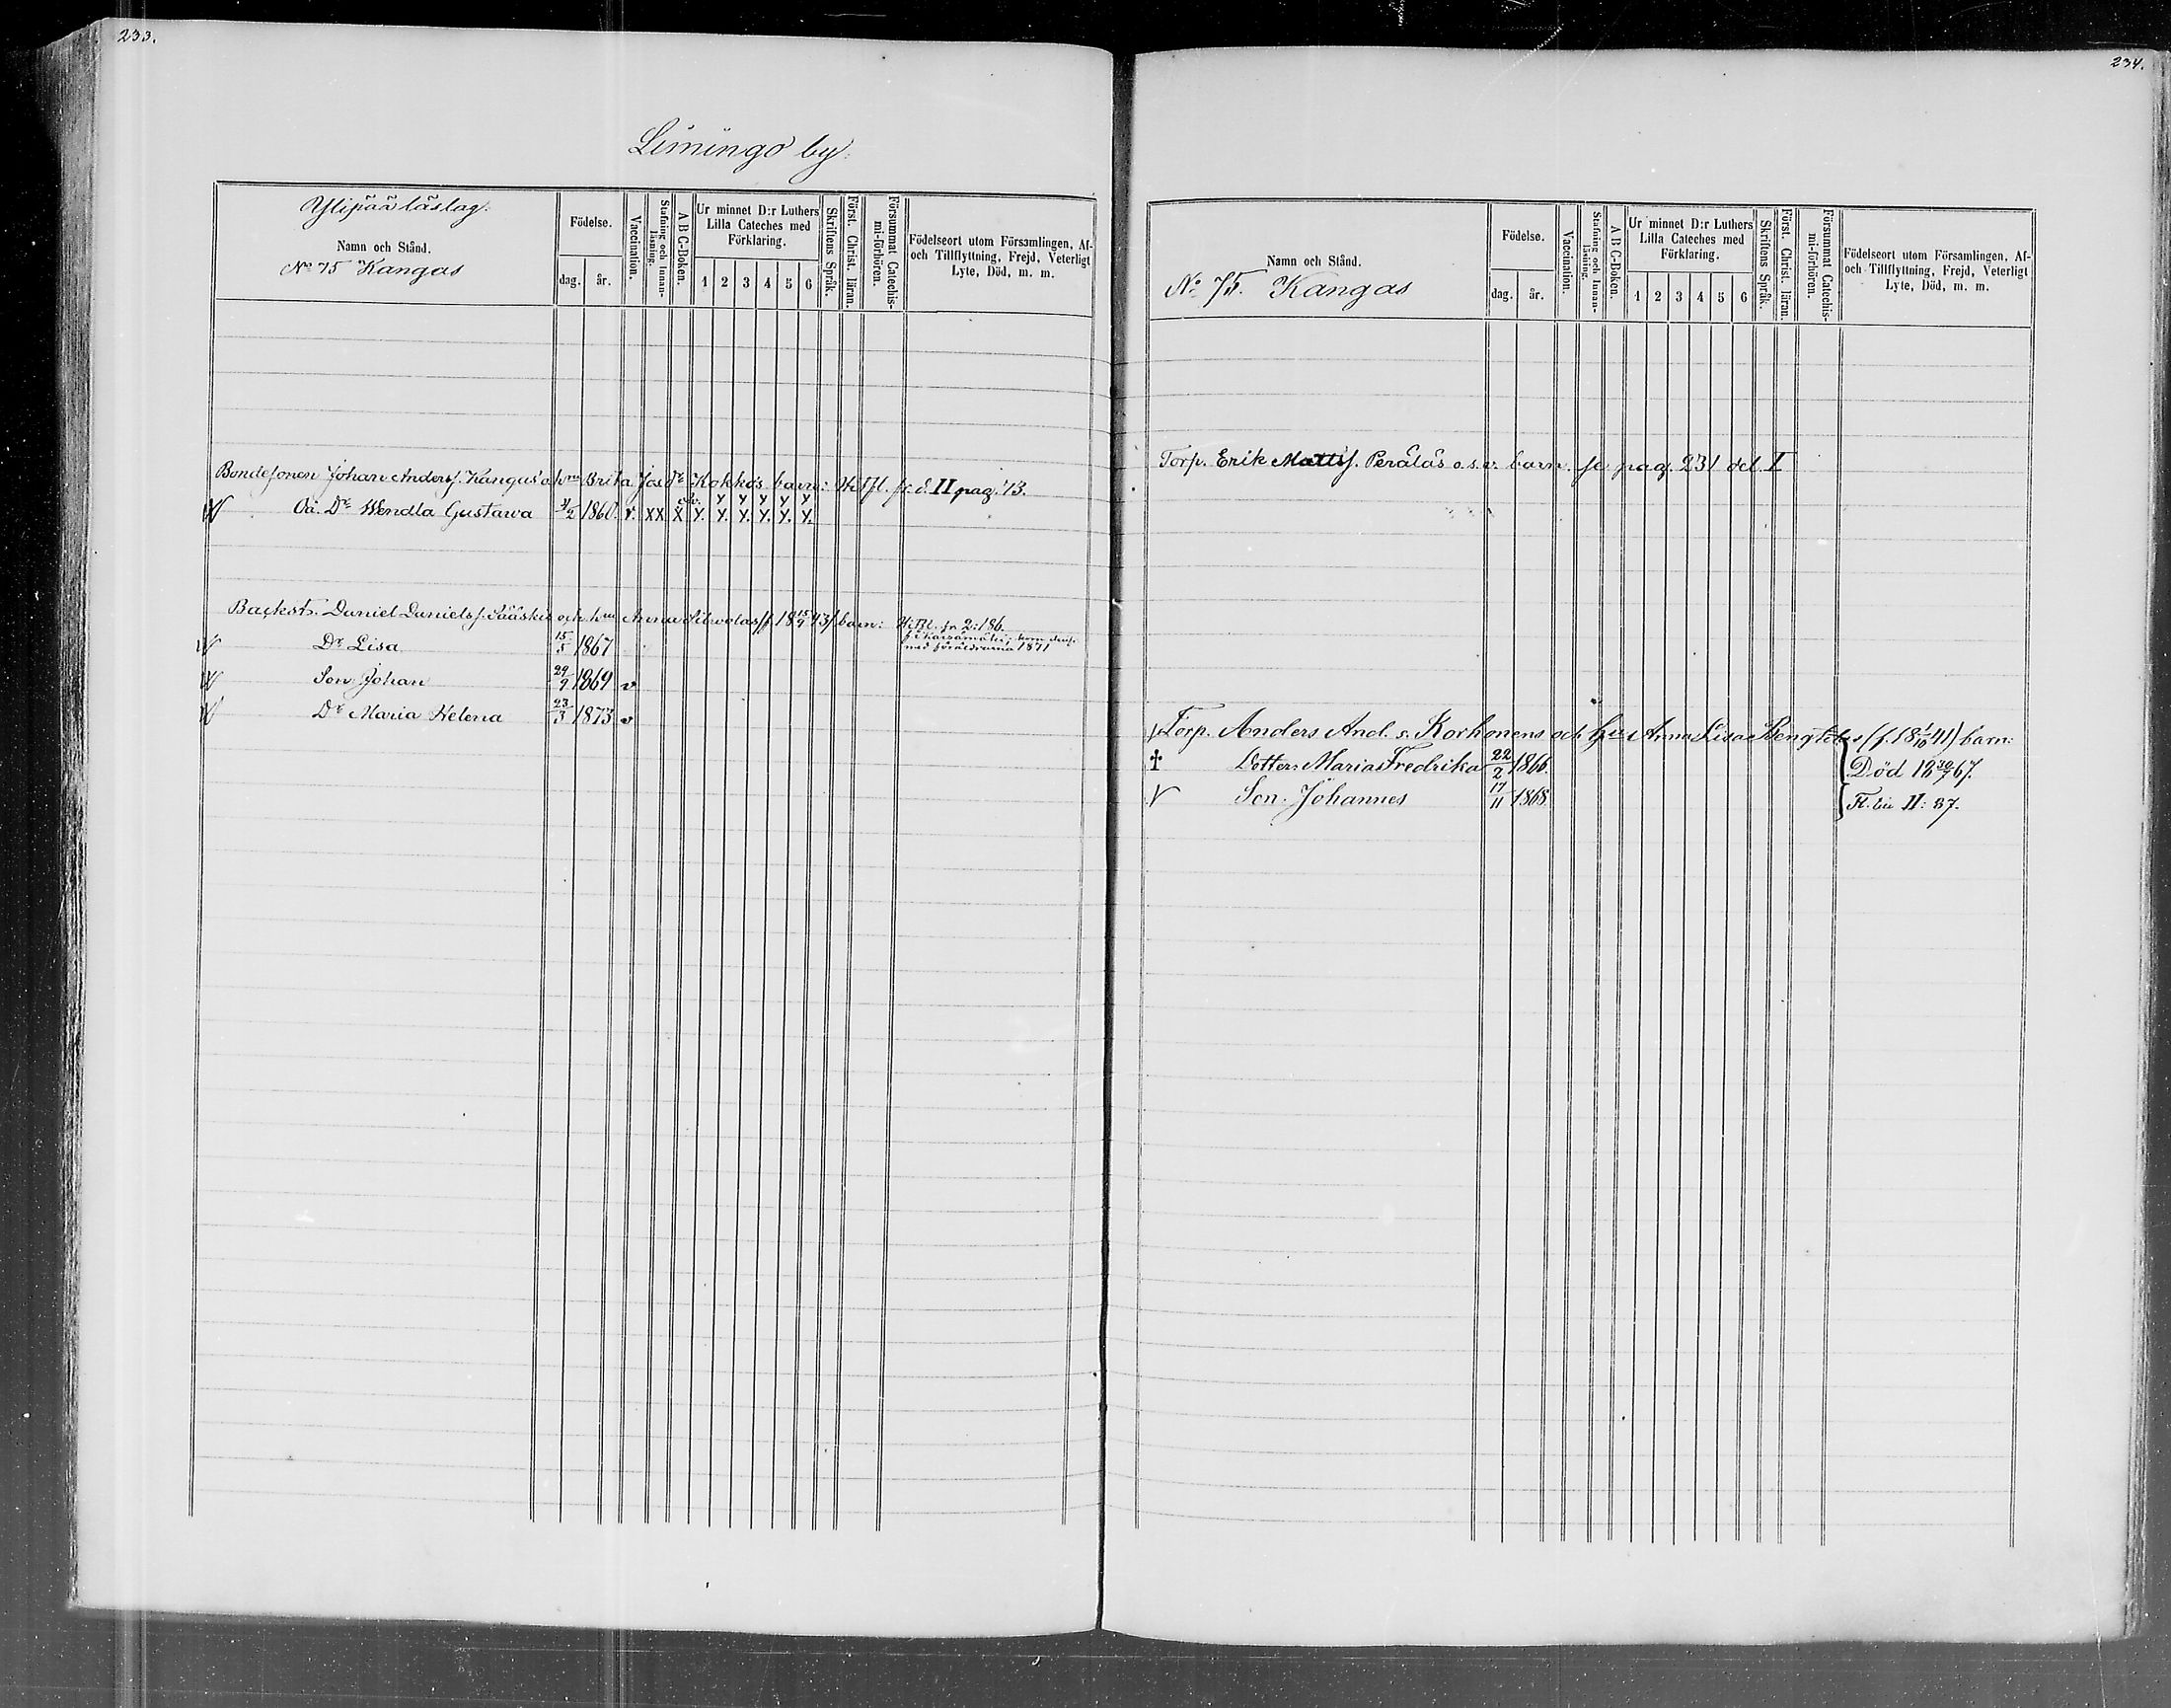 233.
Limingo by.
Ylipää läslag.
Namn och Stånd.
No 75 Kangas
Födelse.
dag. år.
Vaccination.
Stafning och Innan-läsning.
A B C-Boken.
Ur minnet D:r Luthers
Lilla Cateches med
Förklaring.
1 2 3 4 5 6
Skriftens Språk.
Först. Christ. läran.
Försummat Catechis-mi-förhören.
Födelseort utom Församlingen, Af-
och Tillflyttning, Frejd, Veterligt
Lyte, Död, m. m.
Bondesonen Johan Anders s. Kangas' o. hu Brita Jos Dr Kokko's barn: pag. 73.
Oä. Dr Wendla Gustawa 4/2 1860. v. xx x y. y. y. y. y. y.
Backst. Daniel Daniels s. Sääskis och hus Anna barn: 2:186.
med föräldrarna 1871
Dr Lisa 15/5 1867
Son Johan 29/9 1869 v
Dr Maria Helena 23/3 1873 v
234.
Namn och Stånd.
No 75. Kangas
Födelse.
dag. år.
Vaccination.
Stafning och Innan-läsning.
A B C-Boken.
Ur minnet D:r Luthers
Lilla Cateches med
Förklaring.
1 2 3 4 5 6
Skriftens Språk.
Först. Christ. läran.
Försummat Catechis-mi-förhören.
Födelseort utom Församlingen, Af-
och Tillflyttning, Frejd, Veterligt
Lyte, Död, m. m.
Torp. Erik Matts s. Peräläs o.s.v. barn. se pag. 231 del I
Torp. Anders And. s. Korhonens och Hus Anna Lisa Bengtsdrs (f. 18 1/10 41) barn:
† Dotter. Maria Fredrika 22/2 1866. Död 18 30/7 67.
V Son. Johannes 17/11 1868 Fl. till II: 87.